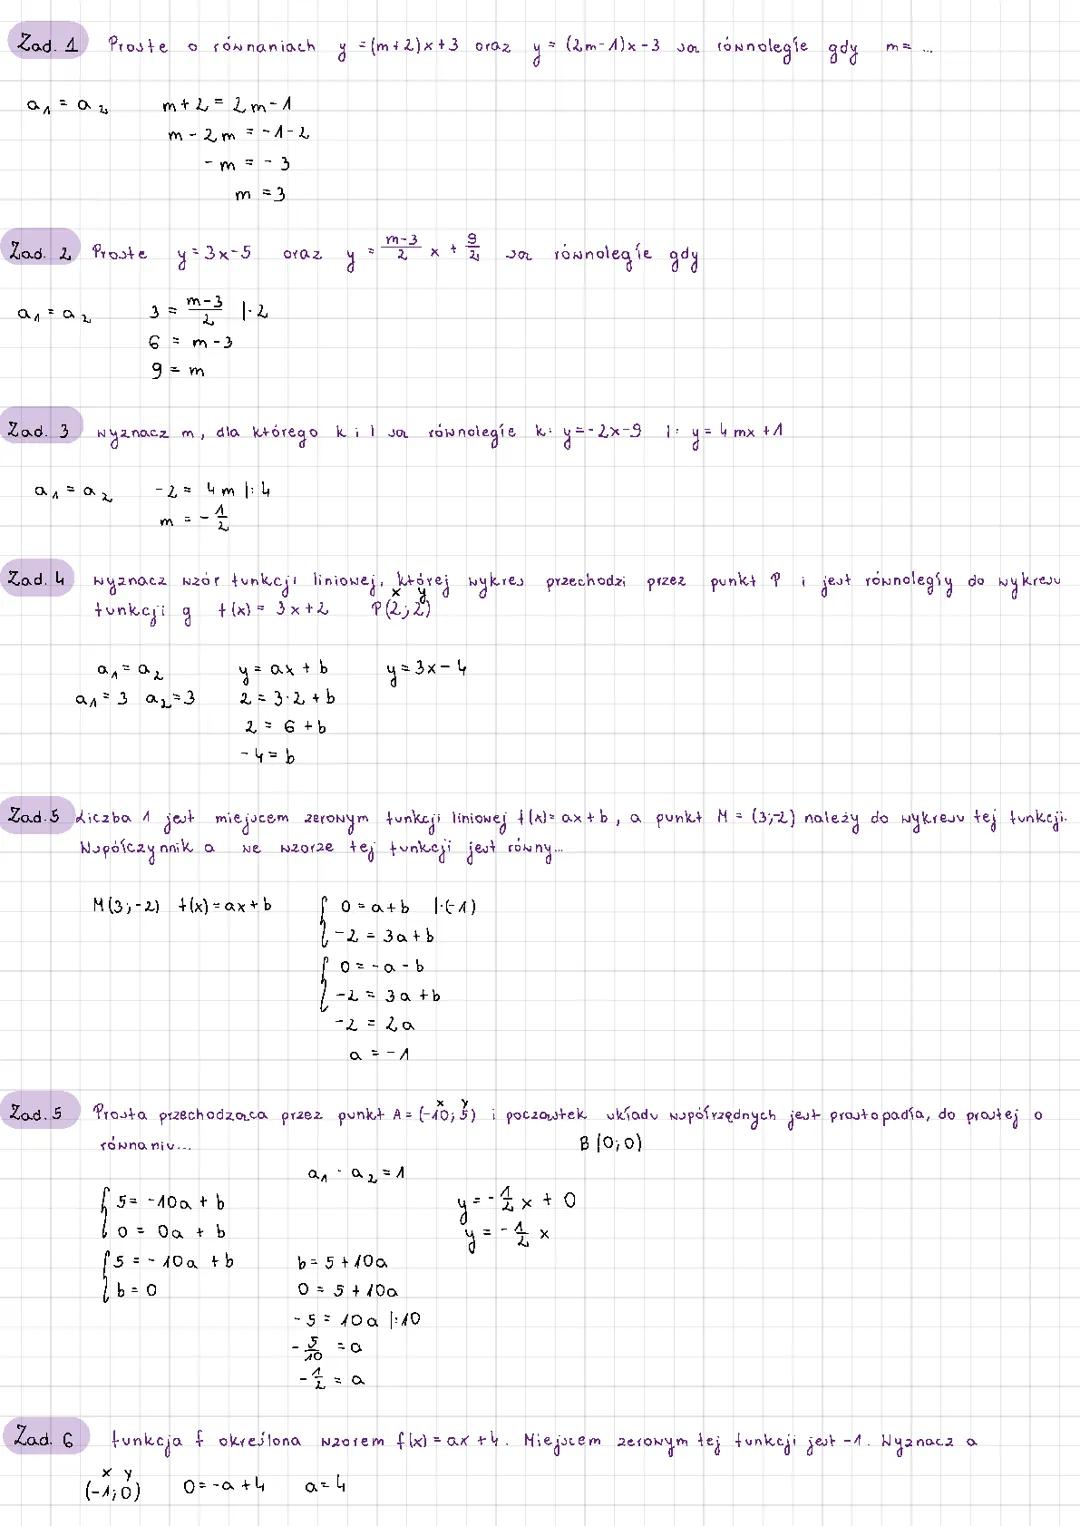 Zad. 1 Proste o równaniach y = (m+2)x+3 oraz y = (2m-1)x-3 są równoległe gdy m = ...
a₁ = a₂ m+2 = 2m-1
m - 2m = -1-2
-m = -3
m = 3
Zad. 2 Proste y = 3x-5 oraz y = \frac{m-3}{2} x + \frac{9}{2} są równoległe gdy
a₁ = a₂ 3 = \frac{m-3}{2} |·2
6 = m-3
9 = m
Zad. 3 wyznacz m, dla którego k i l są równoległe k: y=-2x-9 l: y=4mx+1
a₁ = a₂ -2 = 4m |:4
m = -\frac{1}{2}
Zad. 4 wyznacz wzór funkcji liniowej, której wykres przechodzi przez punkt P i jest równoległy do wykresu
x y
funkcji g f(x) = 3x+2 P(2;2)
a₁ = a₂ y = ax + b y = 3x-4
a₁ = 3 a₂ = 3 2 = 3·2 + b
2 = 6 + b
-4 = b
Zad. 5 Liczba 1 jest miejscem zerowym funkcji liniowej f(x) = ax+b, a punkt M = (3;-2) należy do wykresu tej funkcji.
Współczynnik a we wzorze tej funkcji jest równy...
M(3;-2) f(x) = ax+b { 0 = a+b |·(-1)
-2 = 3a+b
{ 0 = -a-b
-2 = 3a+b
-2 = 2a
a = -1
x y
Zad. 5 Prosta przechodząca przez punkt A = (-10;5) i początek układu współrzędnych jest prostopadła, do prostej o
równaniu... B(0;0)
a₁ · a₂ = 1
{ 5 = -10a + b y = -\frac{1}{2}x + 0
0 = 0a + b y = -\frac{1}{2}x
{ 5 = -10a + b b = 5+10a
b = 0 0 = 5+10a
-5 = 10a |:10
-\frac{5}{10} = a
-\frac{1}{2} = a
Zad. 6 funkcja f określona wzorem f(x) = ax+4. Miejscem zerowym tej funkcji jest -1. Wyznacz a
x y
(-1;0) 0 = -a+4 a = 4